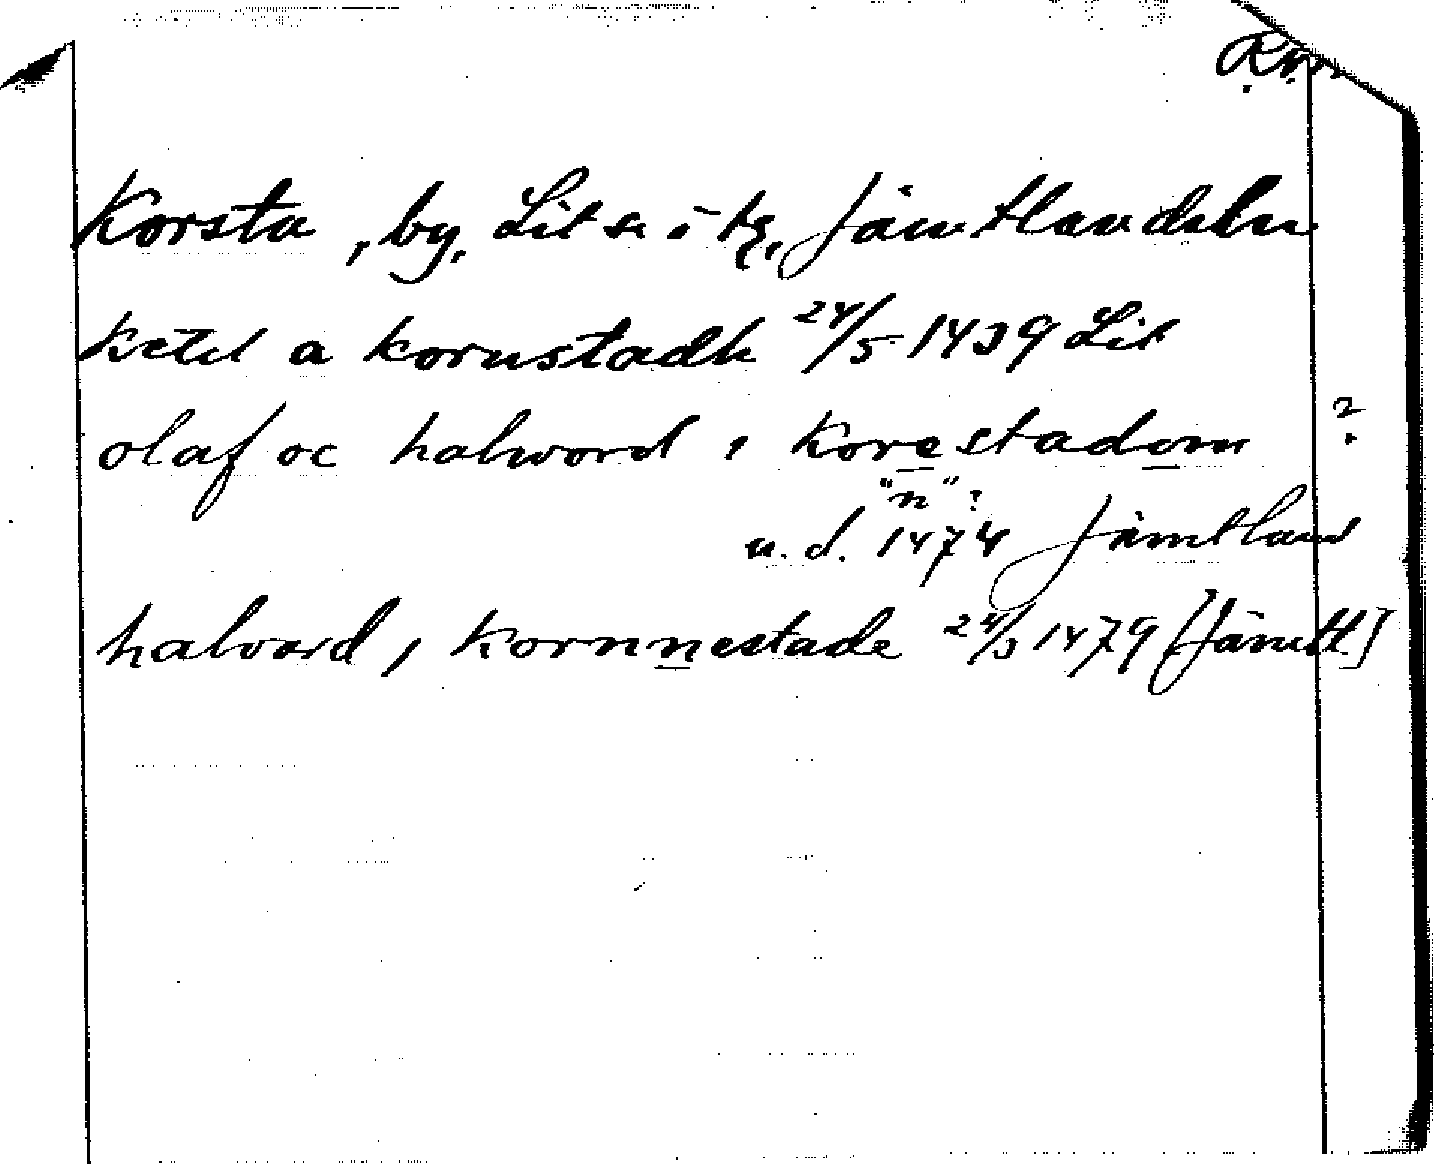 Korsta, by, Lits sn o tg, Jämtlands län
ketel a kornstadh 24/5 1439 Lit
olaf oc halword i korestadom ?
"n"?
u. d. 1474 Jämtland
halvard i kornnestade 24/3 1479 [Jämtl.]